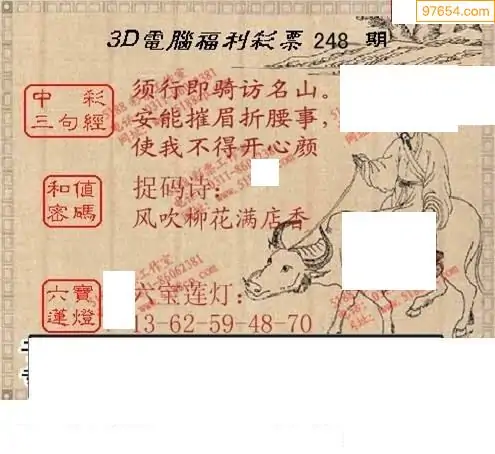 97654.com
3D電腦福利彩票 248 期
中彩
三句經
须行即骑访名山。
安能摧眉折腰事，
使我不得开心颜
和值
密碼
捉码诗：
风吹柳花满店香
六寶
蓮燈
六宝莲灯：
13-62-59-48-70